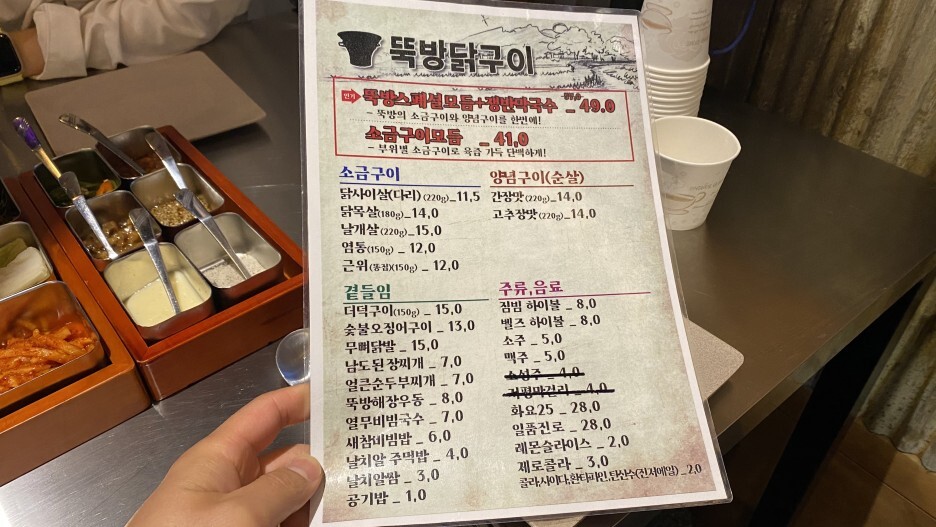 뚝방닭구이
인기 뚝방스페셜모듬+쟁반막국수 57,0 _ 49,0
- 뚝방의 소금구이와 양념구이를 한번에!
소금구이모듬 _ 41,0
- 부위별 소금구이로 육즙 가득 담백하게!
소금구이
닭사이살(다리)(220g)_11,5
닭목살(180g)_14,0
날개살(220g)_15,0
염통(150g) _ 12,0
근위(똥집)(150g) _ 12,0
양념구이(순살)
간장맛(220g)_14,0
고추장맛(220g)_14,0
곁들임
더덕구이(150g) _ 15,0
숯불오징어구이 _ 13,0
무뼈닭발 _ 15,0
남도된장찌개 _ 7,0
얼큰순두부찌개 _ 7,0
뚝방해장우동 _ 8,0
열무비빔국수 _ 7,0
새참비빔밥 _ 6,0
날치알 주먹밥 _ 4,0
날치알쌈 _ 3,0
공기밥 _ 1,0
주류,음료
짐빔 하이볼 _ 8,0
벨즈 하이볼 _ 8,0
소주 _ 5,0
맥주 _ 5,0
소성주 _ 4,0
지평막걸리 _ 4,0
화요25 _ 28,0
일품진로 _ 28,0
레몬슬라이스 _ 2,0
제로콜라 _ 3,0
콜라,사이다,환타파인,탄산수(진저에일) _ 2,0